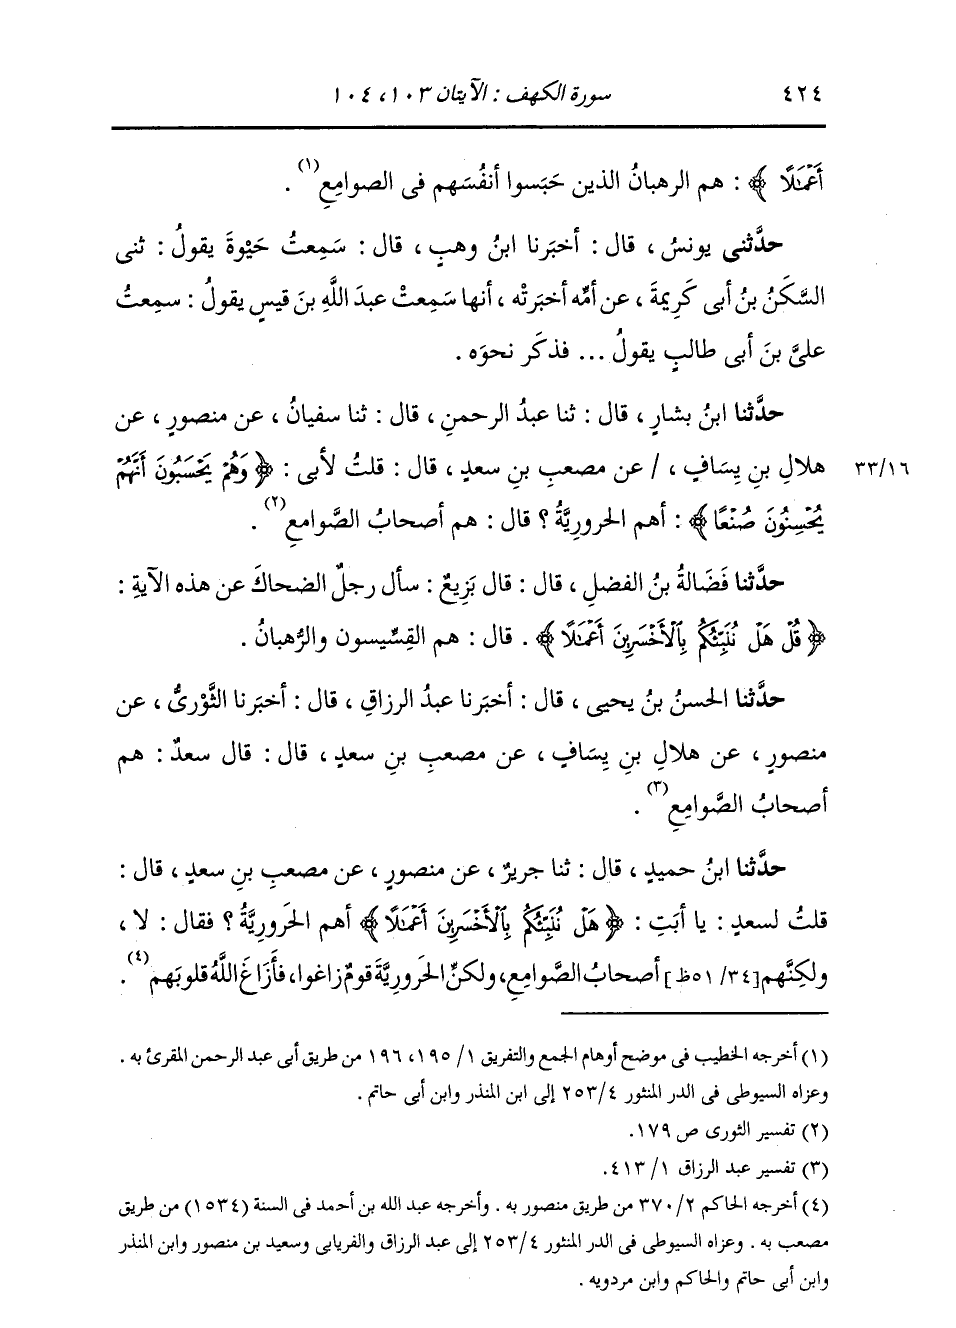 ٤٢٤ سورة الكهف : الآيتان ١٠٣، ١٠٤
أَعْمَٰلًا ﴾ : هم الرهبانُ الذين حَبَسوا أنفُسَهم فى الصوامِعِ (١) .
حدَّثنى يونسُ ، قال : أخبَرنا ابنُ وهبٍ ، قال : سَمِعتُ حَيْوةَ يقولُ : ثنى
السَّكَنُ بنُ أبى كَرِيمةَ ، عن أمِّه أخبَرتْه ، أنها سَمِعتْ عبدَ اللَّهِ بنَ قيسٍ يقولُ : سمِعتُ
علىَّ بنَ أبى طالبٍ يقولُ ... فذكَر نحوَه .
حدَّثنا ابنُ بشارٍ ، قال : ثنا عبدُ الرحمنِ ، قال : ثنا سفيانُ ، عن منصورٍ ، عن
٣٣/١٦ هلالِ بنِ يِسَافٍ ، / عن مصعبِ بنِ سعدٍ ، قال : قلتُ لأبى : ﴿ وَهُمْ يَحْسَبُونَ أَنَّهُمْ
يُحْسِنُونَ صُنْعًا ﴾ : أهم الحروريَّةُ ؟ قال : هم أصحابُ الصَّوامعِ (٢) .
حدَّثنا فَضَالةُ بنُ الفضلِ ، قال : قال بَزِيعٌ : سأل رجلٌ الضحاكَ عن هذه الآيةِ :
﴿ قُلْ هَلْ نُنَبِّئُكُم بِالْأَخْسَرِينَ أَعْمَٰلًا ﴾ . قال : هم القِسِّيسون والرُّهبانُ .
حدَّثنا الحسنُ بنُ يحيى ، قال : أخبَرنا عبدُ الرزاقِ ، قال : أخبَرنا الثَّوْرىُّ ، عن
منصورٍ ، عن هلالِ بنِ يِسَافٍ ، عن مصعبِ بنِ سعدٍ ، قال : قال سعدٌ : هم
أصحابُ الصَّوامِعِ (٣) .
حدَّثنا ابنُ حميدٍ ، قال : ثنا جريرٌ ، عن منصورٍ ، عن مصعبِ بنِ سعدٍ ، قال :
قلتُ لسعدٍ : يا أبَتِ : ﴿ هَلْ نُنَبِّئُكُم بِالْأَخْسَرِينَ أَعْمَٰلًا ﴾ أهم الحَروريَّةُ ؟ فقال : لا ،
ولكِنَّهم [٥١/٣٤ظ] أصحابُ الصَّوامِعِ ، ولكنَّ الحَروريَّةَ قومٌ زاغوا ، فأَزَاغَ اللَّهُ قلوبَهم (٤) .
(١) أخرجه الخطيب فى موضح أوهام الجمع والتفريق ١/ ١٩٥، ١٩٦ من طريق أبى عبد الرحمن المقرئ به .
وعزاه السيوطى فى الدر المنثور ٢٥٣/٤ إلى ابن المنذر وابن أبى حاتم .
(٢) تفسير الثورى ص ١٧٩.
(٣) تفسير عبد الرزاق ١/ ٤١٣.
(٤) أخرجه الحاكم ٣٧٠/٢ من طريق منصور به . وأخرجه عبد الله بن أحمد فى السنة (١٥٣٤) من طريق
مصعب به . وعزاه السيوطى فى الدر المنثور ٢٥٣/٤ إلى عبد الرزاق والفريابى وسعيد بن منصور وابن المنذر
وابن أبى حاتم والحاكم وابن مردويه .